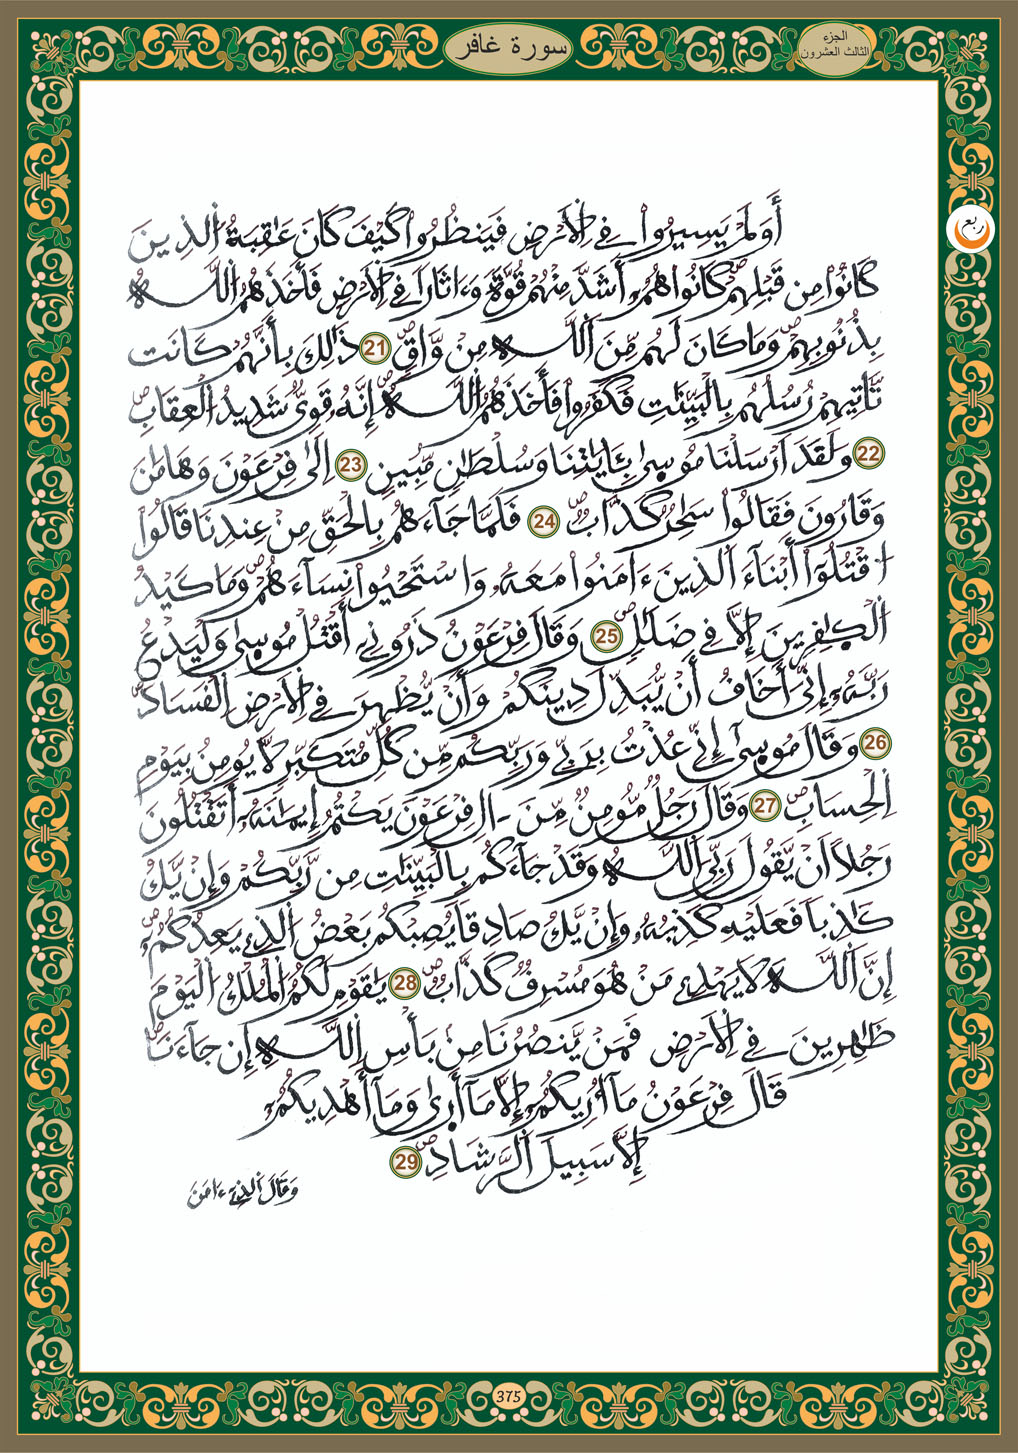 سورة غافر
الجزء
الثالث العشرون
ربع
أَوَلَمْ يَسِيرُوا۟ فِے اِ۬لَارْضِ فَيَنظُرُوا۟ كَيْفَ كَانَ عَٰقِبَةُ اُ۬لذِينَ
كَانُوا۟ مِن قَبْلِهِمْ كَانُوا۟ هُمُۥٓ أَشَدَّ مِنْهُمْ قُوَّةٗ وَءَاثَاراٗ فِے اِ۬لَارْضِ فَأَخَذَهُمُ اُ۬للَّهُ
بِذُنُوبِهِمْ وَمَا كَانَ لَهُم مِّنَ اَ۬للَّهِ مِنْ وَّاقٖ 21 ذَٰلِكَ بِأَنَّهُمْ كَانَت
تَّاتِيهِمْ رُسُلُهُم بِالْبَيِّنَٰتِ فَكَفَرُوا۟ فَأَخَذَهُمُ اُ۬للَّهُ إِنَّهُۥ قَوِيّٞ شَدِيدُ اُ۬لْعِقَابِ
22 وَلَقَدَ اَرْسَلْنَا مُوسَىٰ بِـَٔايَٰتِنَا وَسُلْطَٰنٖ مُّبِينٍ 23 اِلَىٰ فِرْعَوْنَ وَهَامَٰنَ
وَقَارُونَ فَقَالُوا۟ سَٰحِرٞ كَذَّابٞ 24 فَلَمَّا جَآءَهُم بِالْحَقِّ مِنْ عِندِنَا قَالُوا۟
اُ۟قْتُلُوٓا۟ أَبْنَآءَ اَ۬لذِينَ ءَامَنُوا۟ مَعَهُۥ وَاسْتَحْيُوا۟ نِسَآءَهُمْ وَمَا كَيْدُ
اُ۬لْكٰ۪فِرِينَ إِلَّا فِے ضَلَٰلٖ 25 وَقَالَ فِرْعَوْنُ ذَرُونِےٓ أَقْتُلْ مُوسَىٰ وَلْيَدْعُ
رَبَّهُۥٓ إِنِّيَ أَخَافُ أَنْ يُّبَدِّلَ دِينَكُمْ وَأَنْ يُّظْهِرَ فِے اِ۬لَارْضِ اِ۬لْفَسَادَ
26 وَقَالَ مُوسَىٰٓ إِنِّے عُذْتُ بِرَبِّے وَرَبِّكُم مِّن كُلِّ مُتَكَبِّرٖ لَّا يُومِنُ بِيَوْمِ
اِ۬لْحِسَابِ 27 وَقَالَ رَجُلٞ مُّومِنٞ مِّنَ اٰلِ فِرْعَوْنَ يَكْتُمُ إِيمَٰنَهُۥٓ أَتَقْتُلُونَ
رَجُلاً اَنْ يَّقُولَ رَبِّيَ اَ۬للَّهُ وَقَدْ جَآءَكُم بِالْبَيِّنَٰتِ مِن رَّبِّكُمْ وَإِنْ يَّكُ
كَٰذِباٗ فَعَلَيْهِ كَذِبُهُۥ وَإِنْ يَّكُ صَادِقاٗ يُصِبْكُم بَعْضُ اُ۬لذِے يَعِدُكُمُۥٓ
إِنَّ اَ۬للَّهَ لَا يَهْدِے مَنْ هُوَ مُسْرِفٞ كَذَّابٞ 28 يَٰقَوْمِ لَكُمُ اُ۬لْمُلْكُ اُ۬لْيَوْمَ
ظَٰهِرِينَ فِے اِ۬لَارْضِ فَمَنْ يَّنصُرُنَا مِنۢ بَأْسِ اِ۬للَّهِ إِن جَآءَنَا
قَالَ فِرْعَوْنُ مَآ أُرِيكُمُۥٓ إِلَّا مَآ أَرَىٰ وَمَآ أَهْدِيكُمُۥٓ
إِلَّا سَبِيلَ اَ۬لرَّشَادِ 29
وَقَالَ اَ۬لذِےٓ ءَامَنَ
375